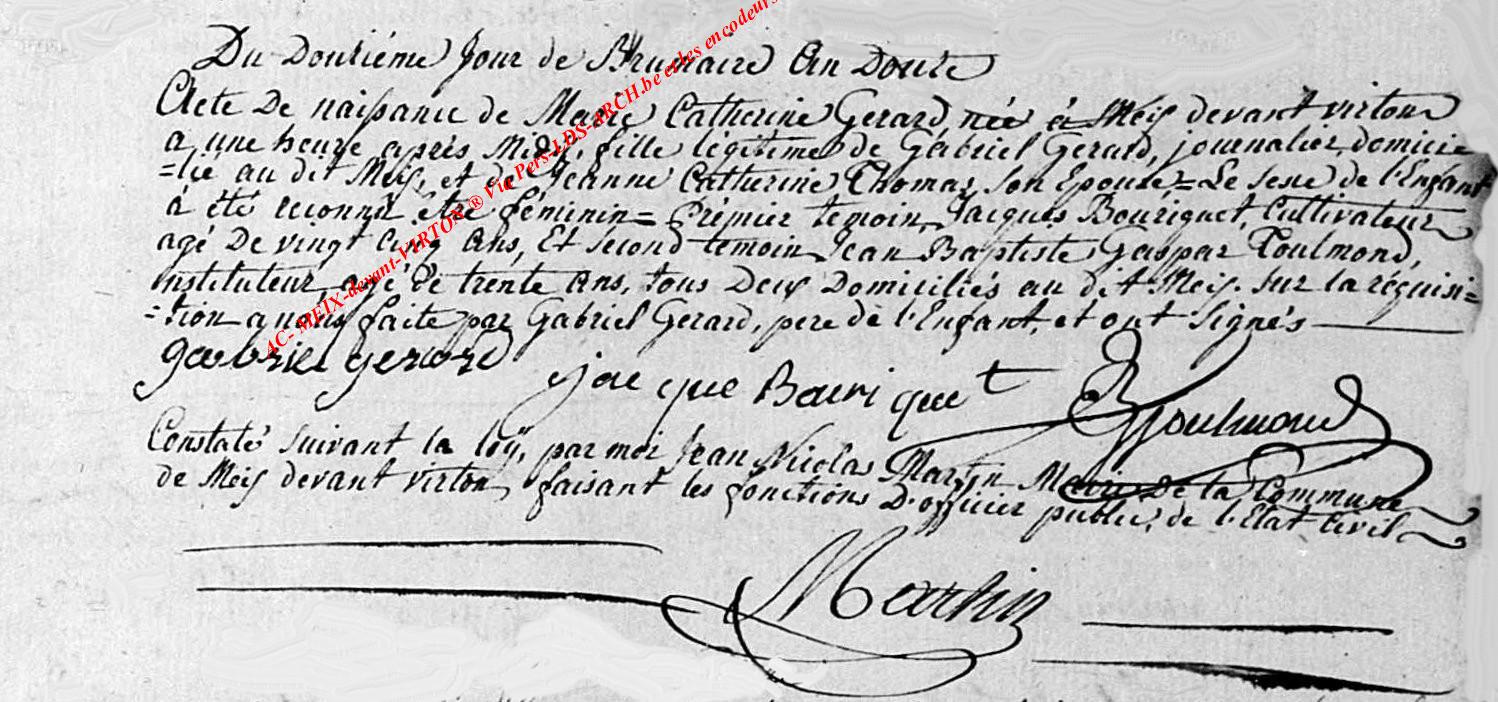 Du Douziéme Jour de Brumaire An Douze
Acte De naissance de Marie Catherine Gerard, née à Meix devant virton
a une heure après Midy, fille légitime de Gabriel Gerard, journalier, domici=
=lié au dit Meix, et de Jeanne Catherine Thomas, son Epouse = Le sexe de l'Enfant
à été reconnu être féminin = Prémier temoin, Jacques Bouriquet, Cultivateur
agé De vingt cinq ans, Et second temoin Jean Baptiste Gaspar Toulmond,
instituteur, agé de trente ans, tous Deux Domiciliés au dit Meix. sur la réquisi=
=tion a nous faite par Gabriel Gerard, pere de l'Enfant, et ont signés
gabriel gerard
jacque Bouri quet
Toulmond
Constaté suivant la loÿ, par moi Jean Nicolas Martin Maire De la Commune
de Meix devant virton, faisant les fonctions D'officier public, de l'Etat Civil
Martin
AC- MEIX-devant-VIRTON ® Via Pers-LDS-ARCH.be et les encodeurs